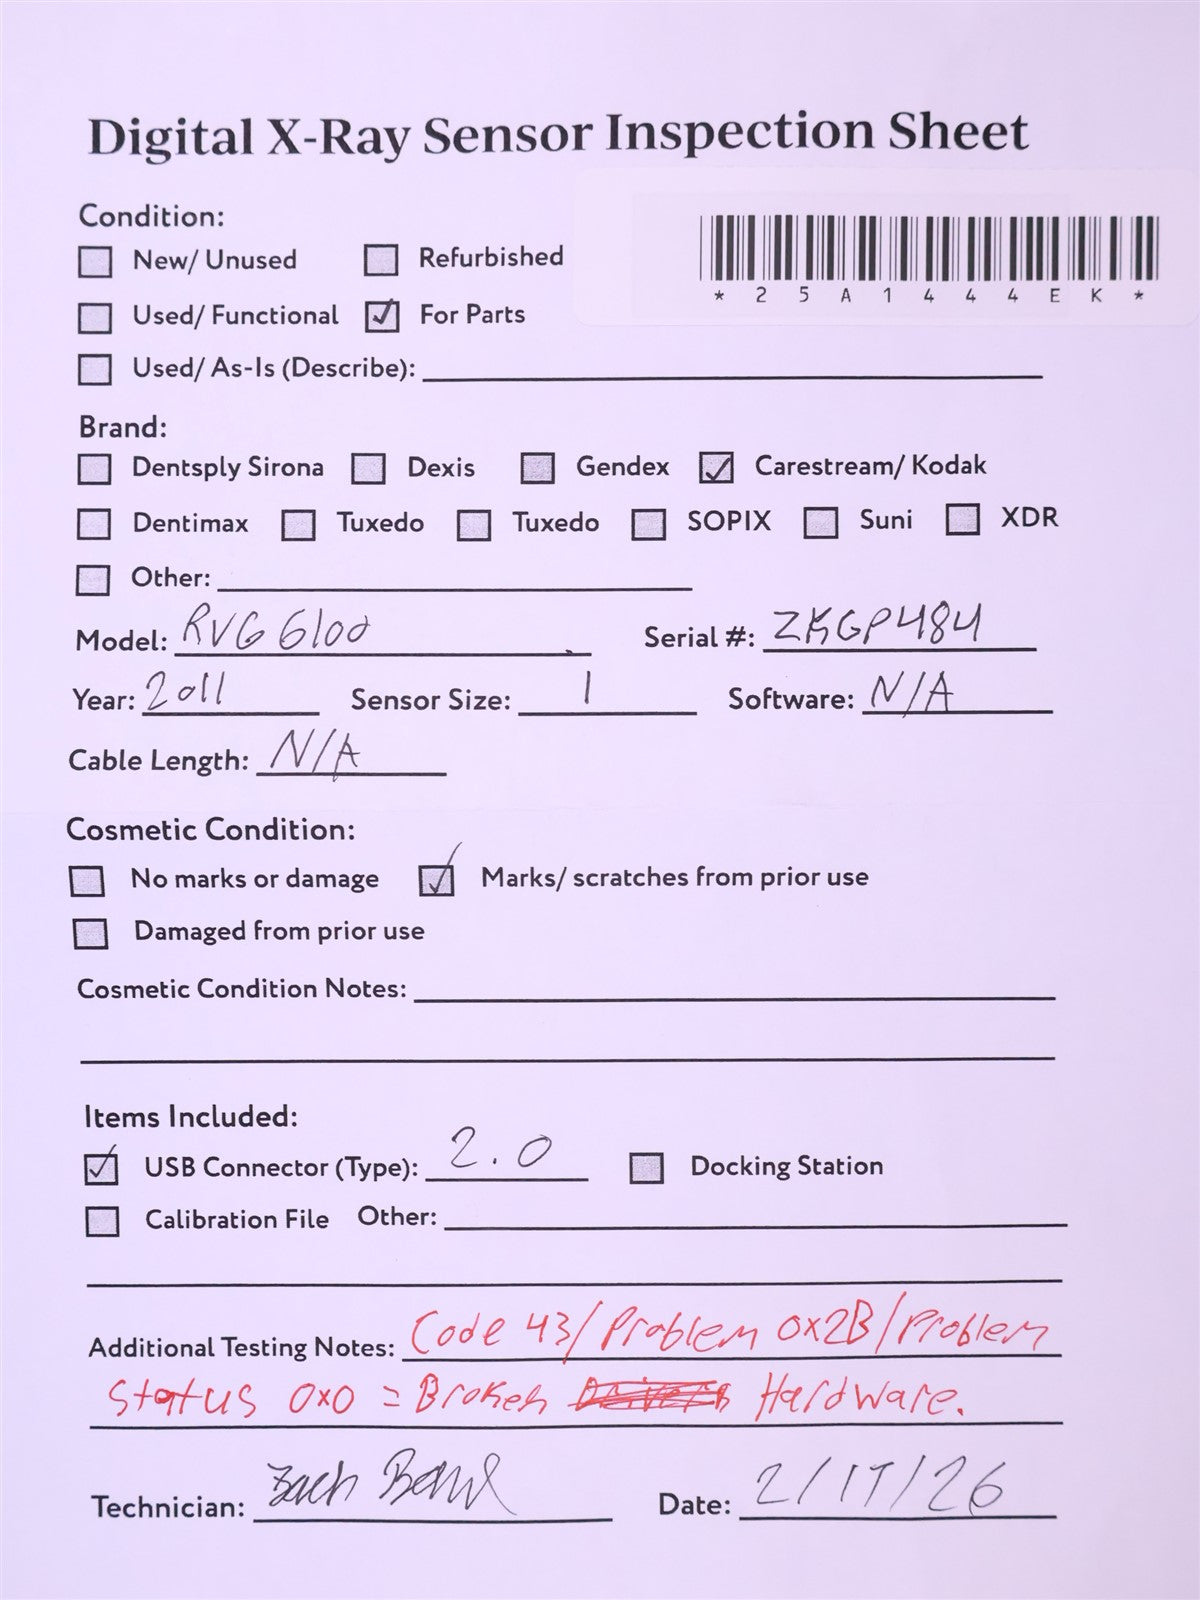 Digital X-Ray Sensor Inspection Sheet
Condition:
New/ Unused Refurbished
*25A1444EK*
Used/ Functional For Parts
Used/ As-Is (Describe):
Brand:
Dentsply Sirona Dexis Gendex Carestream/ Kodak
Dentimax Tuxedo Tuxedo SOPIX Suni XDR
Other:
Model: RVG 6100 Serial #: ZKGP484
Year: 2011 Sensor Size: 1 Software: N/A
Cable Length: N/A
Cosmetic Condition:
No marks or damage Marks/ scratches from prior use
Damaged from prior use
Cosmetic Condition Notes:
Items Included:
USB Connector (Type): 2.0 Docking Station
Calibration File Other:
Additional Testing Notes: Code 43/Problem 0x2B/Problem
Status 0x0 = Broken Hardware.
Technician: Zach Date: 2/17/26